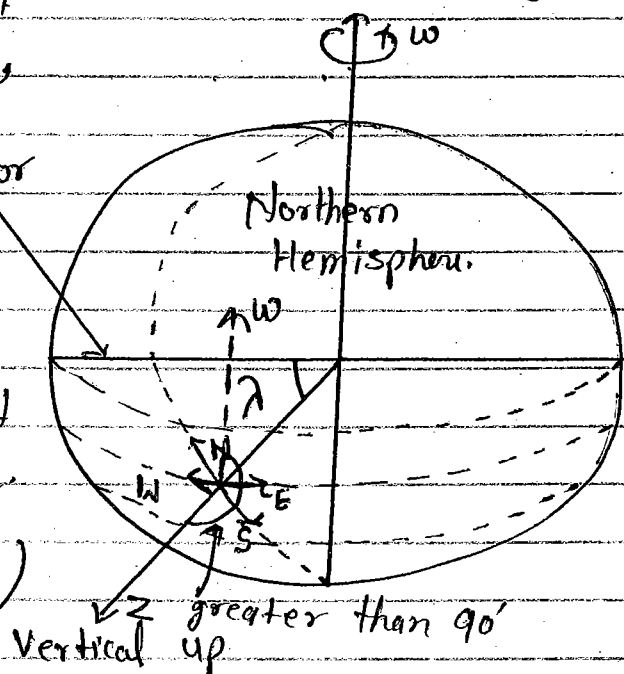 ω
or
Northern
Hemispheru.
ω
λ
N
W
E
S
Z greater than 90°
Vertical up